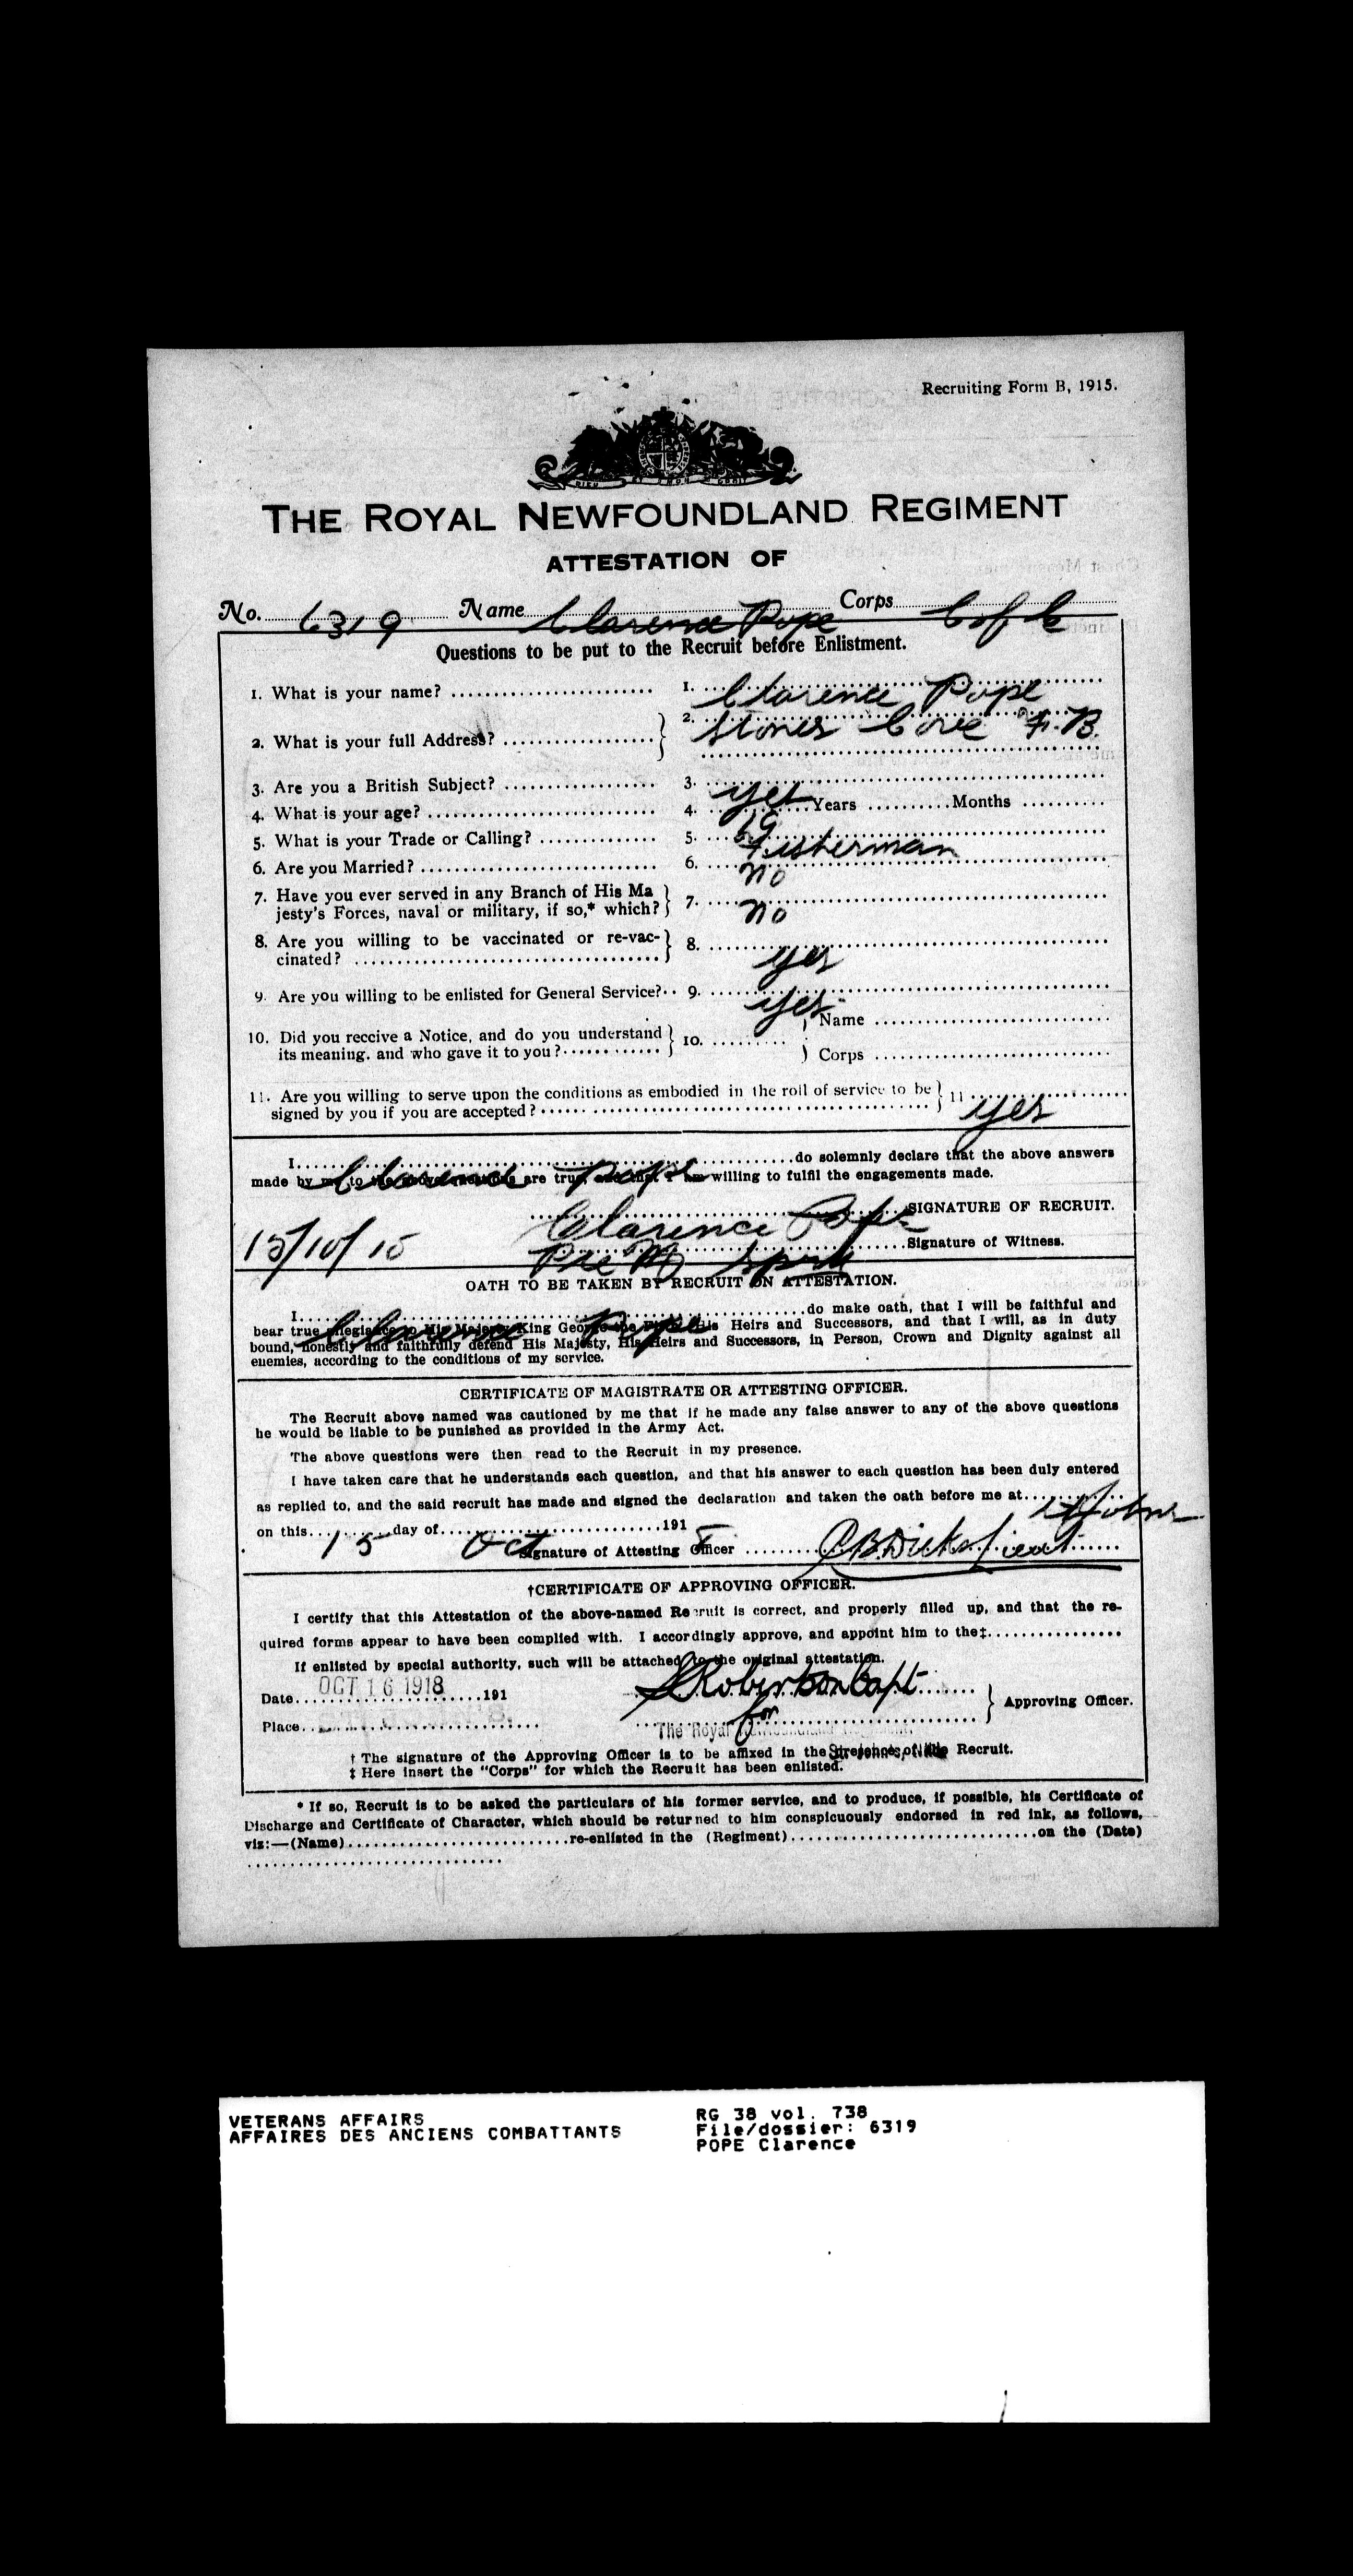 Recruiting Form B, 1915.
DIEU ET MON DROIT
THE ROYAL NEWFOUNDLAND REGIMENT
ATTESTATION OF
No. 6319 Name Clarence Pope Corps C of E
Questions to be put to the Recruit before Enlistment.
1. What is your name? 1. Clarence Pope
2. What is your full Address? 2. Stones Cove F.B.
3. Are you a British Subject? 3. yes
4. What is your age? 4. 19 Years Months
5. What is your Trade or Calling? 5. Fisherman
6. Are you Married? 6. no
7. Have you ever served in any Branch of His Ma
jesty's Forces, naval or military, if so,* which? 7. no
8. Are you willing to be vaccinated or re-vac-
cinated? 8. yes
9. Are you willing to be enlisted for General Service? 9. yes
10. Did you receive a Notice, and do you understand
its meaning. and who gave it to you? 10. Name
Corps
11. Are you willing to serve upon the conditions as embodied in the roll of service to be
signed by you if you are accepted? 11 yes
I Clarence Pope do solemnly declare that the above answers
made by me to the above questions are true, and that I am willing to fulfil the engagements made.
Clarence Pope SIGNATURE OF RECRUIT.
15/10/18 Pte Signature of Witness.
OATH TO BE TAKEN BY RECRUIT ON ATTESTATION.
I Clarence Pope do make oath, that I will be faithful and
bear true allegiance to His Majesty King George the Fifth, His Heirs and Successors, and that I will, as in duty
bound, honestly and faithfully defend His Majesty, His Heirs and Successors, in Person, Crown and Dignity against all
enemies, according to the conditions of my service.
CERTIFICATE OF MAGISTRATE OR ATTESTING OFFICER.
The Recruit above named was cautioned by me that if he made any false answer to any of the above questions
he would be liable to be punished as provided in the Army Act.
The above questions were then read to the Recruit in my presence.
I have taken care that he understands each question, and that his answer to each question has been duly entered
as replied to, and the said recruit has made and signed the declaration and taken the oath before me at St Johns
on this 15 day of Oct 191 8
Signature of Attesting Officer C B Dicks Lieut
†CERTIFICATE OF APPROVING OFFICER.
I certify that this Attestation of the above-named Recruit is correct, and properly filled up, and that the re-
quired forms appear to have been complied with. I accordingly approve, and appoint him to the‡
If enlisted by special authority, such will be attached to the original attestation.
Date OCT 16 1918 191 Robertson Capt
Place for Approving Officer.
The Royal Newfoundland Regiment,
† The signature of the Approving Officer is to be affixed in the presence of the Recruit.
St. John's, Nfld.
‡ Here insert the "Corps" for which the Recruit has been enlisted.
* If so, Recruit is to be asked the particulars of his former service, and to produce, if possible, his Certificate of
Discharge and Certificate of Character, which should be returned to him conspicuously endorsed in red ink, as follows,
viz:—(Name) re-enlisted in the (Regiment) on the (Date)
VETERANS AFFAIRS
AFFAIRES DES ANCIENS COMBATTANTS
RG 38 vol. 738
File/dossier: 6319
POPE Clarence